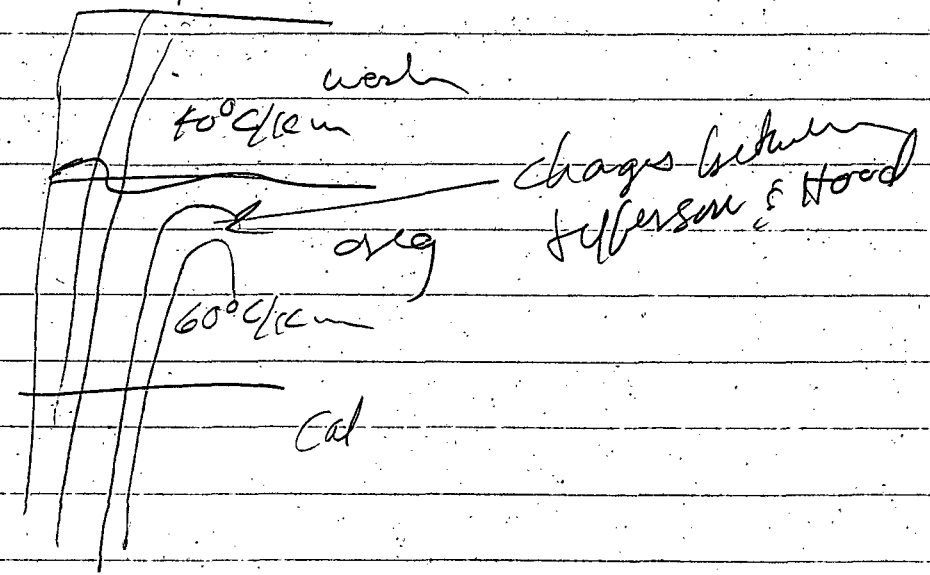 wash
40°C/km
changes between
Jefferson & Hood
oreg
60°C/km
Cal